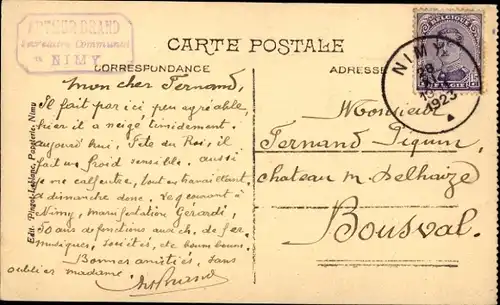 ARTHUR BRAND
Secrétaire Communal
NIMY
CARTE POSTALE
CORRESPONDANCE
ADRESSE
BELGIQUE
NIMY
1923
Mon cher Fernand,
Il fait par ici, peu agréable,
hier il a neigé timidement.
aujourd'hui, Fête du Roi, il
fait un froid sensible. aussi
je me calfeutre, tout en travaillant.
à dimanche donc.
Nimy, manifestation Gérardi,
50 ans de fonctions aux ch. de fer
musiques, sociétés, etc boum boum.
Bonnes amitiés, sans
oublier madame
Monsieur
Fernand Piquin,
chateau M. Delhaize
Bousval.
Edit. Papeterie, Nimy